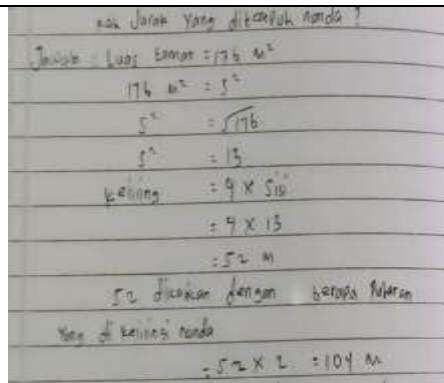 kah Jarak yang ditempuh nanda ?
Jawab : Luas taman = 176 m²
176 m² = s²
s² = √176
s² = 13
keliling = 4 x sisi
= 4 x 13
= 52 m
52 dikalikan dengan berapa putaran
yang di kelilingi nanda
= 52 x 2 = 104 m